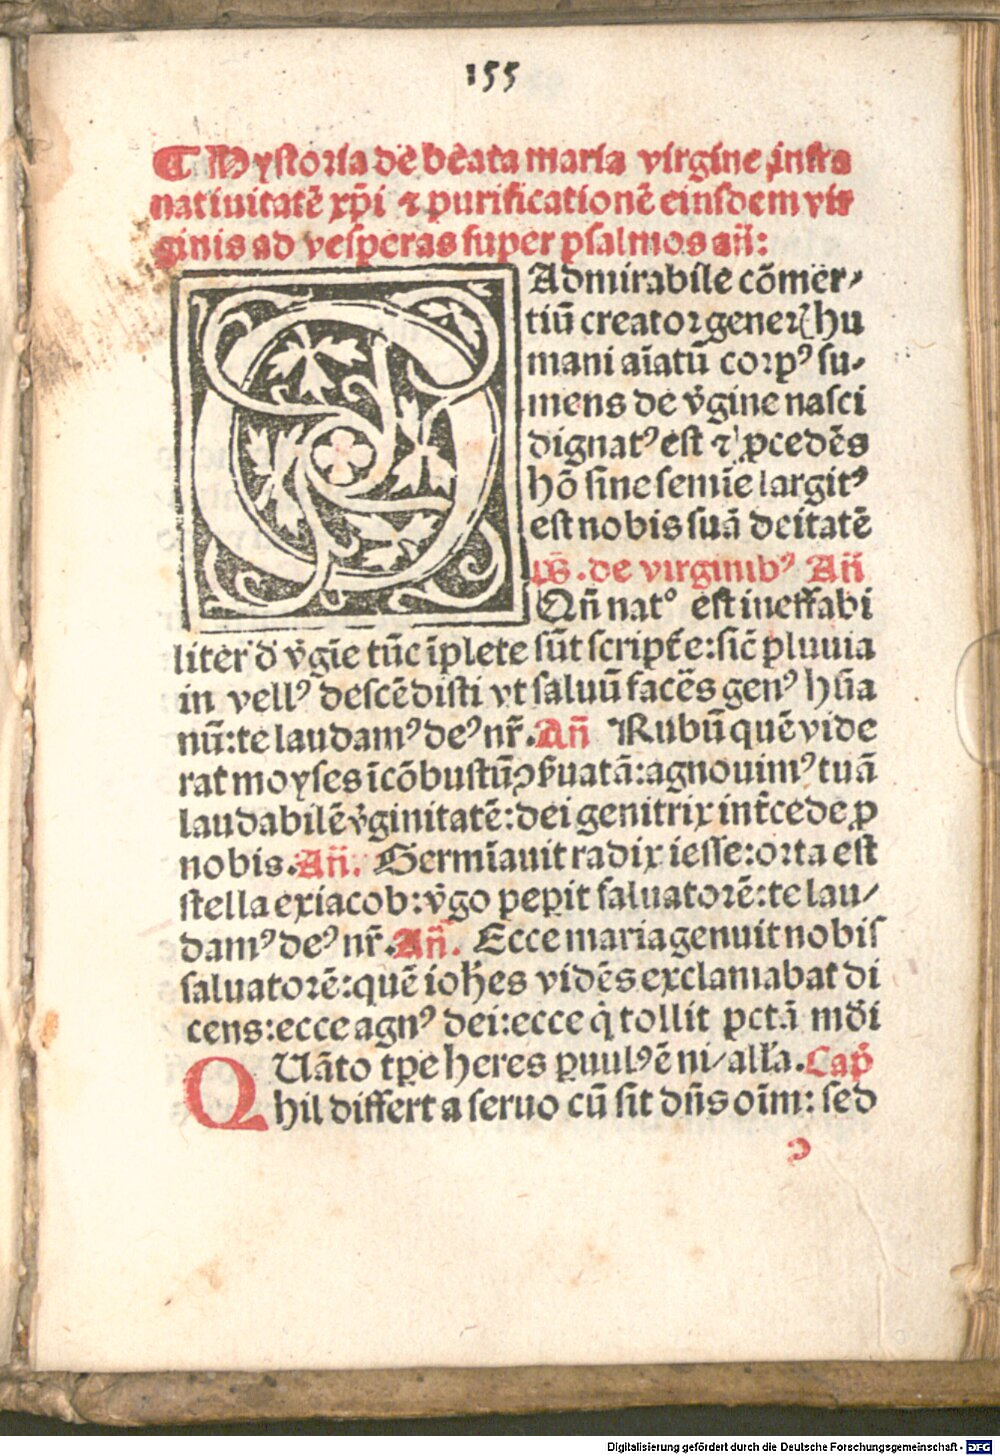 155
¶ Hystoria de beata maria virgine infra
natiuitatē xp̄i ⁊ purificationē eiusdem vir
ginis ad vesperas super psalmos an̄:
O Admirabile cōmer⸗
tiū creatoꝛ generꝭ hu
mani aīatū coꝛpꝰ su⸗
mens de v̓gine nasci
dignatꝰ est ⁊ ꝓcedēs
hō sine semīe largitꝰ
est nobis suā deitatē
ps̄. de virginibꝰ An̄
Qn̄ natꝰ est ineffabi
liter d̓ v̓gīe tūc īplete sūt script̄e: sic̄ pluuia
in vellꝰ descēdisti vt saluū facēs genꝰ hūa
nū: te laudamꝰ deꝰ nr̄. An̄ Rubū quē vide
rat moyses īcōbustū ꝯẜuatā: agnouimꝰ tuā
laudabilē v̓ginitatē: dei genitrix int̄cede ꝓ
nobis. An̄. Germīauit radix iesse: oꝛta est
stella ex iacob: v̓go peꝑit saluatoꝛē: te lau⸗
damꝰ deꝰ nr̄. An̄. Ecce maria genuit nobis
saluatoꝛē: quē ioh̄es vidēs exclamabat di
cens: ecce agnꝰ dei: ecce q̇ tollit pctā mūdi
QUāto tp̄e heres ꝑuulꝰ ē ni⸗ alľa. Cap̄
hil differt a seruo cū sit dn̄s oīm: sed